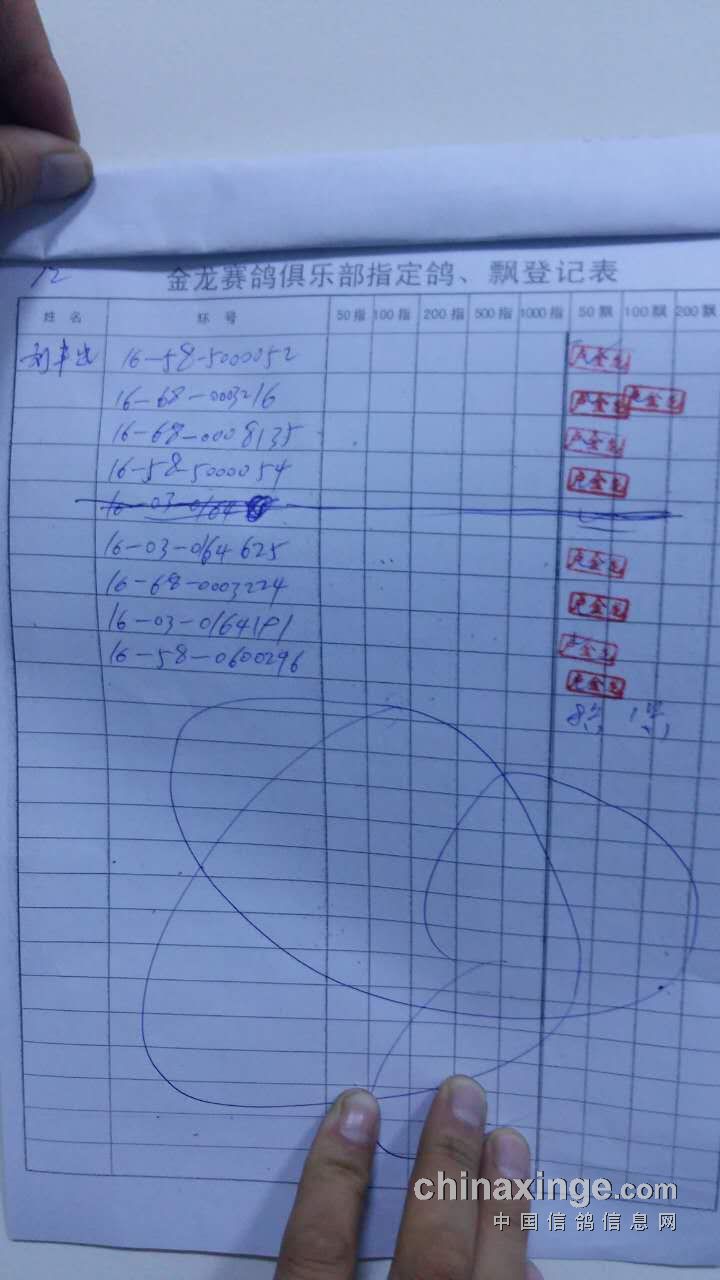 12
金龙赛鸽俱乐部指定鸽、飘登记表
姓 名 环 号 50指 100指 200指 500指 1000指 50飘 100飘 200飘
16-58-5000052
16-68-0003216
16-68-0008135
16-58-5000054
16-03-0164
16-03-0164625
16-68-0003224
16-03-0164191
16-58-0600296
chinaxinge.com
中国信鸽信息网